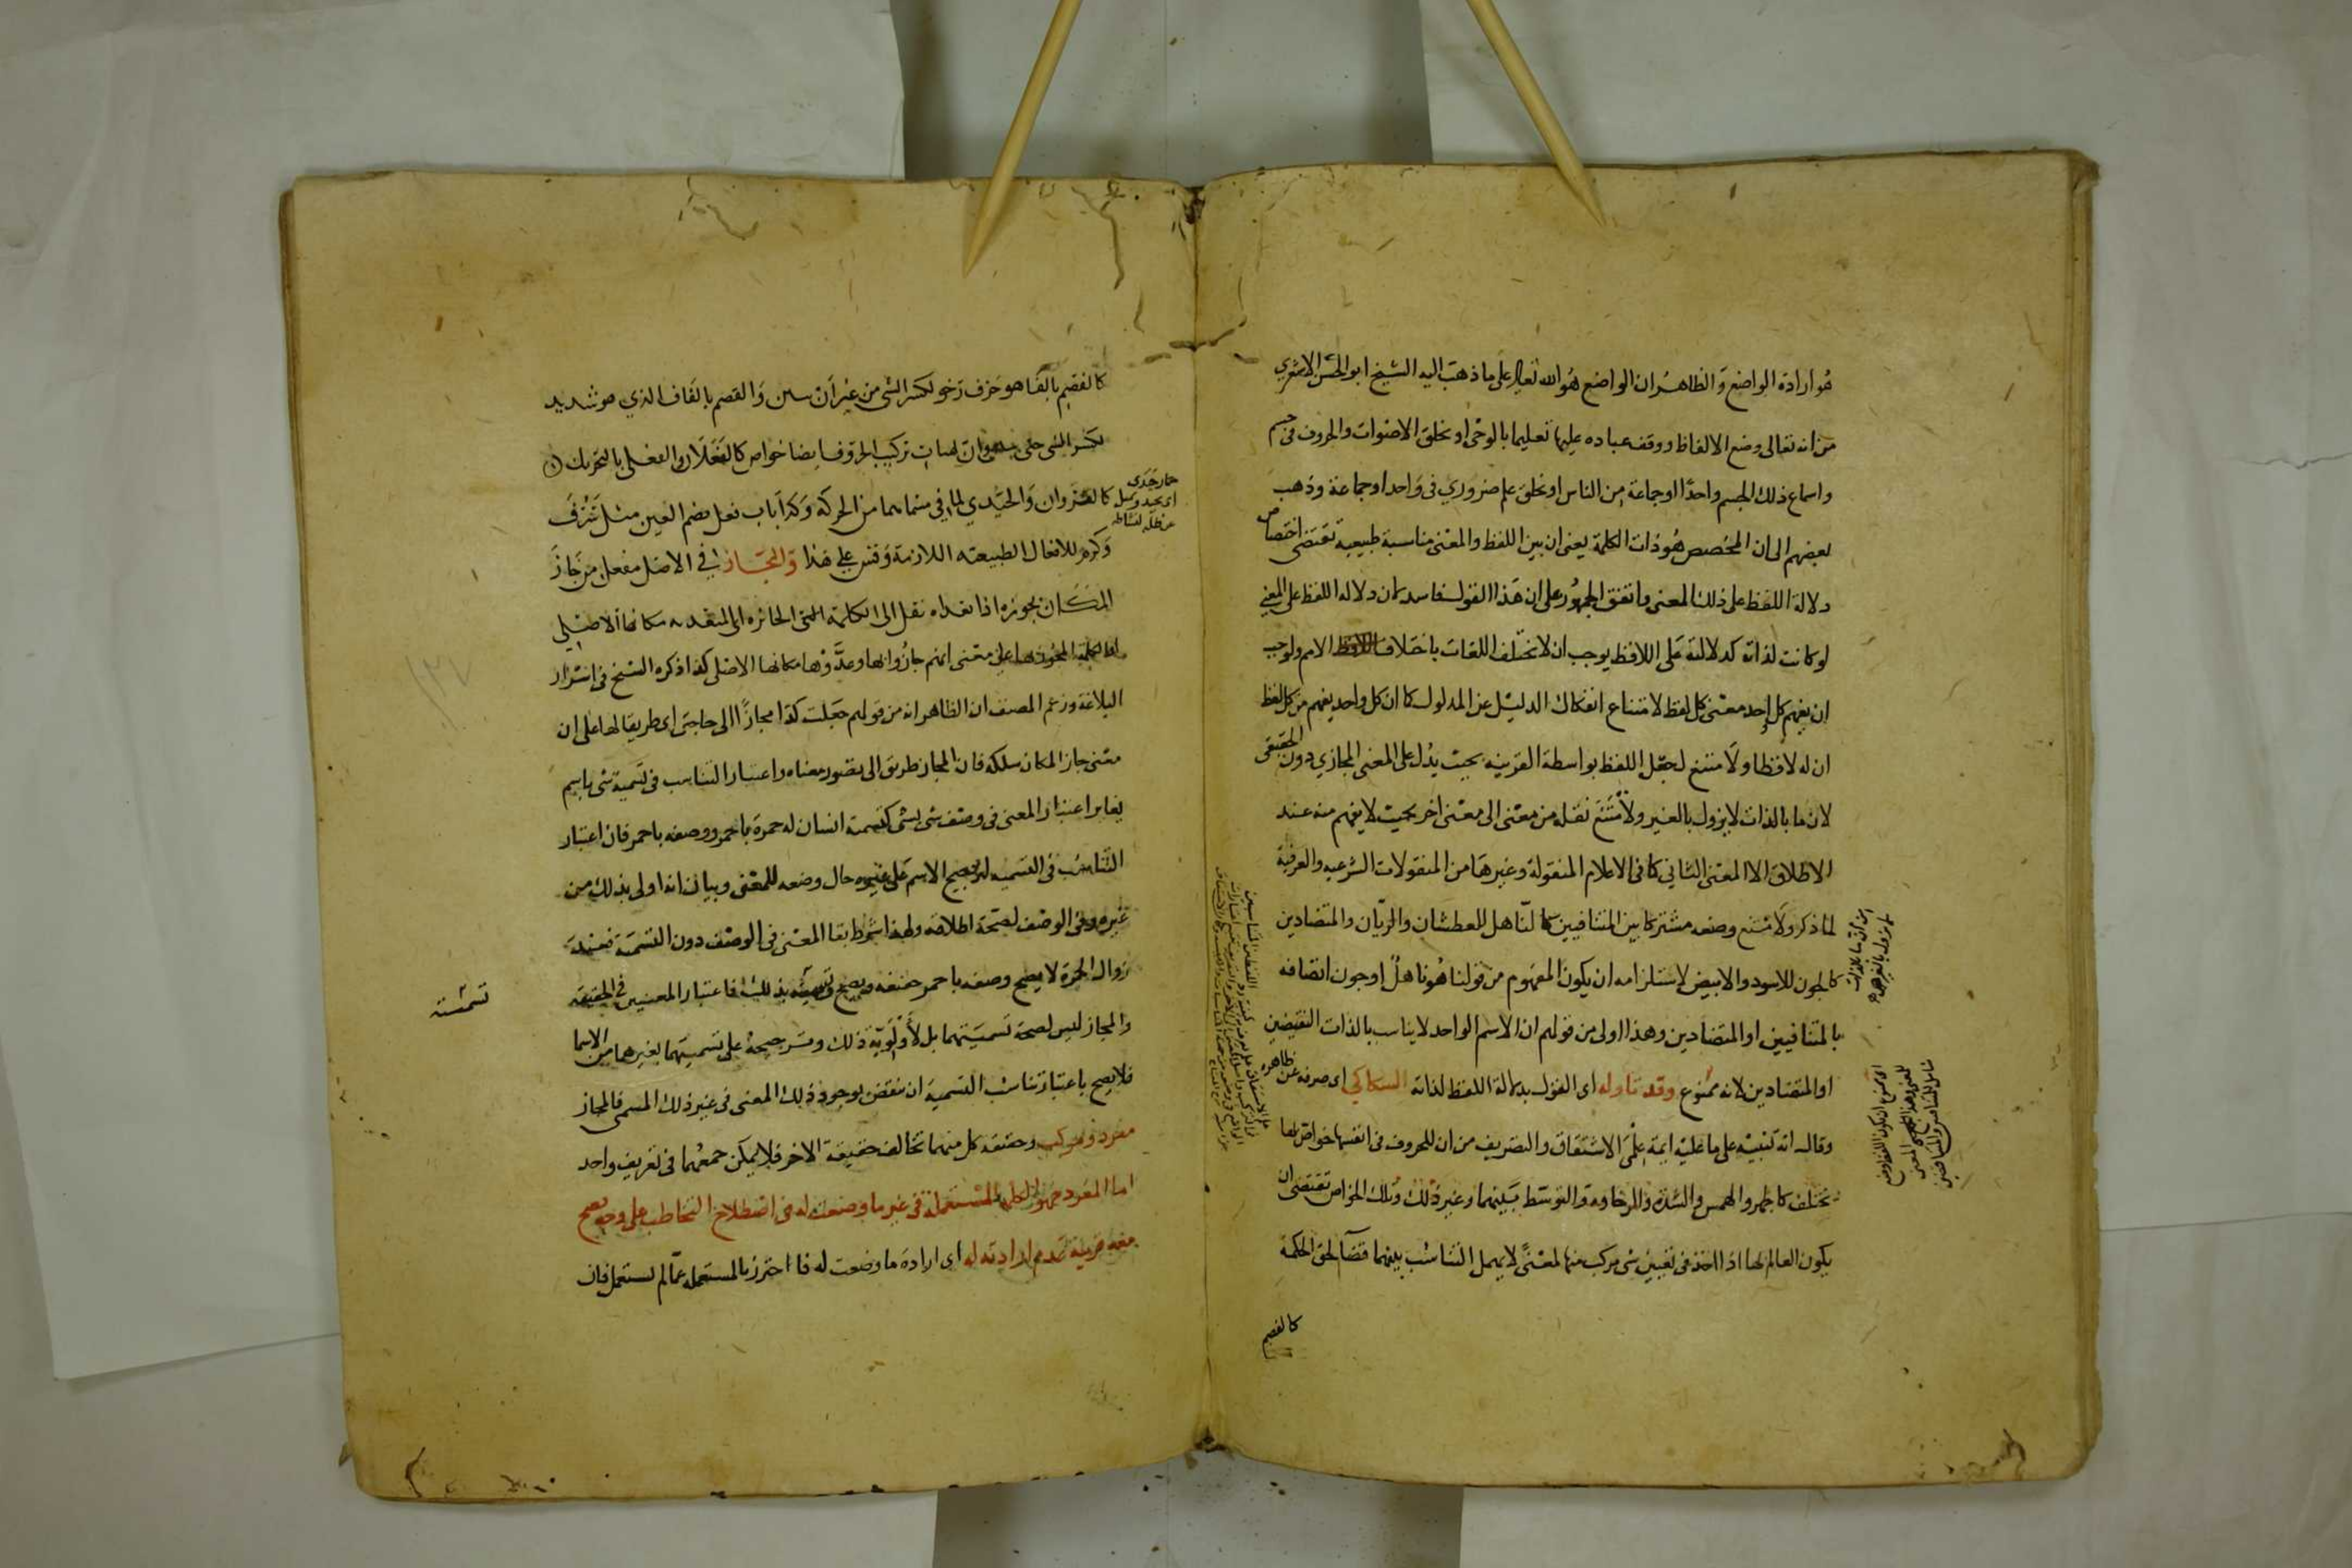 هو ارادة الواضع والظاهر ان الواضع هو الله تعالى على ما ذهب اليه الشيخ ابو الحسن الاشعري
من انه تعالى وضع الالفاظ ووقف عباده عليها تعليما بالوحى او بخلق الاصوات والحروف فى جسم
واسماع ذلك الجسم واحدا او جماعة من الناس او بخلق علم ضروري فى واحد او جماعة وذهب
بعضهم الى ان المخصص هو ذات الكلمة يعنى ان بين اللفظ والمعنى مناسبة طبيعية تقتضى اختصاص
دلالة اللفظ على ذلك المعنى واتفق الجمهور على ان هذا القول فاسد لان دلالة اللفظ على المعنى
لو كانت لذاته كدلالته على اللافظ يوجب ان لا تختلف اللغات باختلاف الامم ولوجب
ان يفهم كل احد معنى كل لفظ لامتناع انفكاك الدليل عن المدلول كما ان كل واحد يفهم من كل لفظ
ان له لافظا ولامتنع لجعل اللفظ بواسطة القرينه بحيث يدل على المعنى المجازي دون الحقيقى
لان ما بالذات لا يزول بالغير ولامتنع نقله من معنى الى معنى اخر بحيث لا يفهم منه عند
الاطلاق الا المعنى الثانى كما فى الاعلام المنقولة وغيرها من المنقولات الشرعيه والعرفية
لما ذكر ولامتنع وضعه مشتركا بين المتنافيين كالناهل للعطشان والريان والمتضادين
كالجون للاسود والابيض لاستلزامه ان يكون المفهوم من قولنا هو ناهل او جون اتصافه
بالمتنافيين او المتضادين وهذا اولى من قولهم ان الاسم الواحد لا يناسب بالذات النقيضين
او المتضادين لانه ممنوع وقد تاوله اى القول بدلالة اللفظ لذاته السكاكي اى صرفه عن ظاهره
وقال انه تنبيه على ما عليه ايمة علمى الاشتقاق والتصريف من ان للحروف فى انفسها خواص بها
تختلف كالجهر والهمس والشدة والرخاوة والتوسط بينهما وغير ذلك وتلك الخواص تقتضى ان
يكون العالم بها اذا اخذ فى تعيين شى مركب منها لمعنى لا يهمل التناسب بينهما قضآ لحق الحكمة
كالفصم
كالفصم بالفا هو حرف رخو لكسر الشى من غير ان يبين والقصم بالقاف الذي هو شديد
لكسر الشى حتى يبين وان لهيات تركيب الحروف ايضا خواص كالفعلان والفعلى بالتحريك
كالنزوان والحيدي لما فى مسماهما من الحركة وكذا باب فعل بضم العين مثل شرف
حمار حيدى
اى يحيد
عن ظله لنشاطه
وكرم للافعال الطبيعيه اللازمة وقس على هذا والمجاز فى الاصل مفعل من جاز
المكان يجوزه اذا تعداه نقل الى الكلمة الجائزه اى المتعديه مكانها الاصلى
او الكلمة المجوز بها على معنى انهم جازوا بها وعدوها مكانها الاصلى كذا ذكره الشيخ فى اسرار
البلاغة وزعم المصنف ان الظاهر انه من قولهم جعلت كذا مجازا الى حاجتى اى طريقا لها على ان
معنى جاز المكان سلكه فان المجاز طريق الى تصور معناه واعتبار التناسب فى تسمية شى باسم
يغاير اعتبار المعنى فى وصف شى بشى كتسمية انسان له حمرة باحمر ووصفه باحمر فان اعتبار
التناسب فى التسميه لترجيح الاسم على غيره حال وضعه للمعنى وبيان انه اولى بذلك من
غيره وفى الوصف لصحة اطلاقه ولهذا شرط بقا المعنى فى الوصف دون التسمية فعند
زوال الحمرة لا يصح وصفه باحمر حقيقه ويصح تسميته بذلك فاعتبار المعنيين فى الحقيقه
تسميته
والمجاز ليس لصحة تسميتهما بل لأولوية ذلك وترجيحه على تسميتهما بغيرهما من الاسما
فلا يصح باعتبار تناسب التسمية ان ينقض بوجود ذلك المعنى فى غير ذلك المسمى فالمجاز
مفرد ومركب وحقيقة كل منهما تخالف حقيقة الاخر فلا يمكن جمعهما فى تعريف واحد
اما المفرد فهو الكلمة المستعملة فى غير ما وضعت له فى اصطلاح التخاطب على وجه يصح
معه قرينة عدم ارادته له اى ارادة ما وضعت له فا احترز بالمستعملة عما لم يستعمل فان